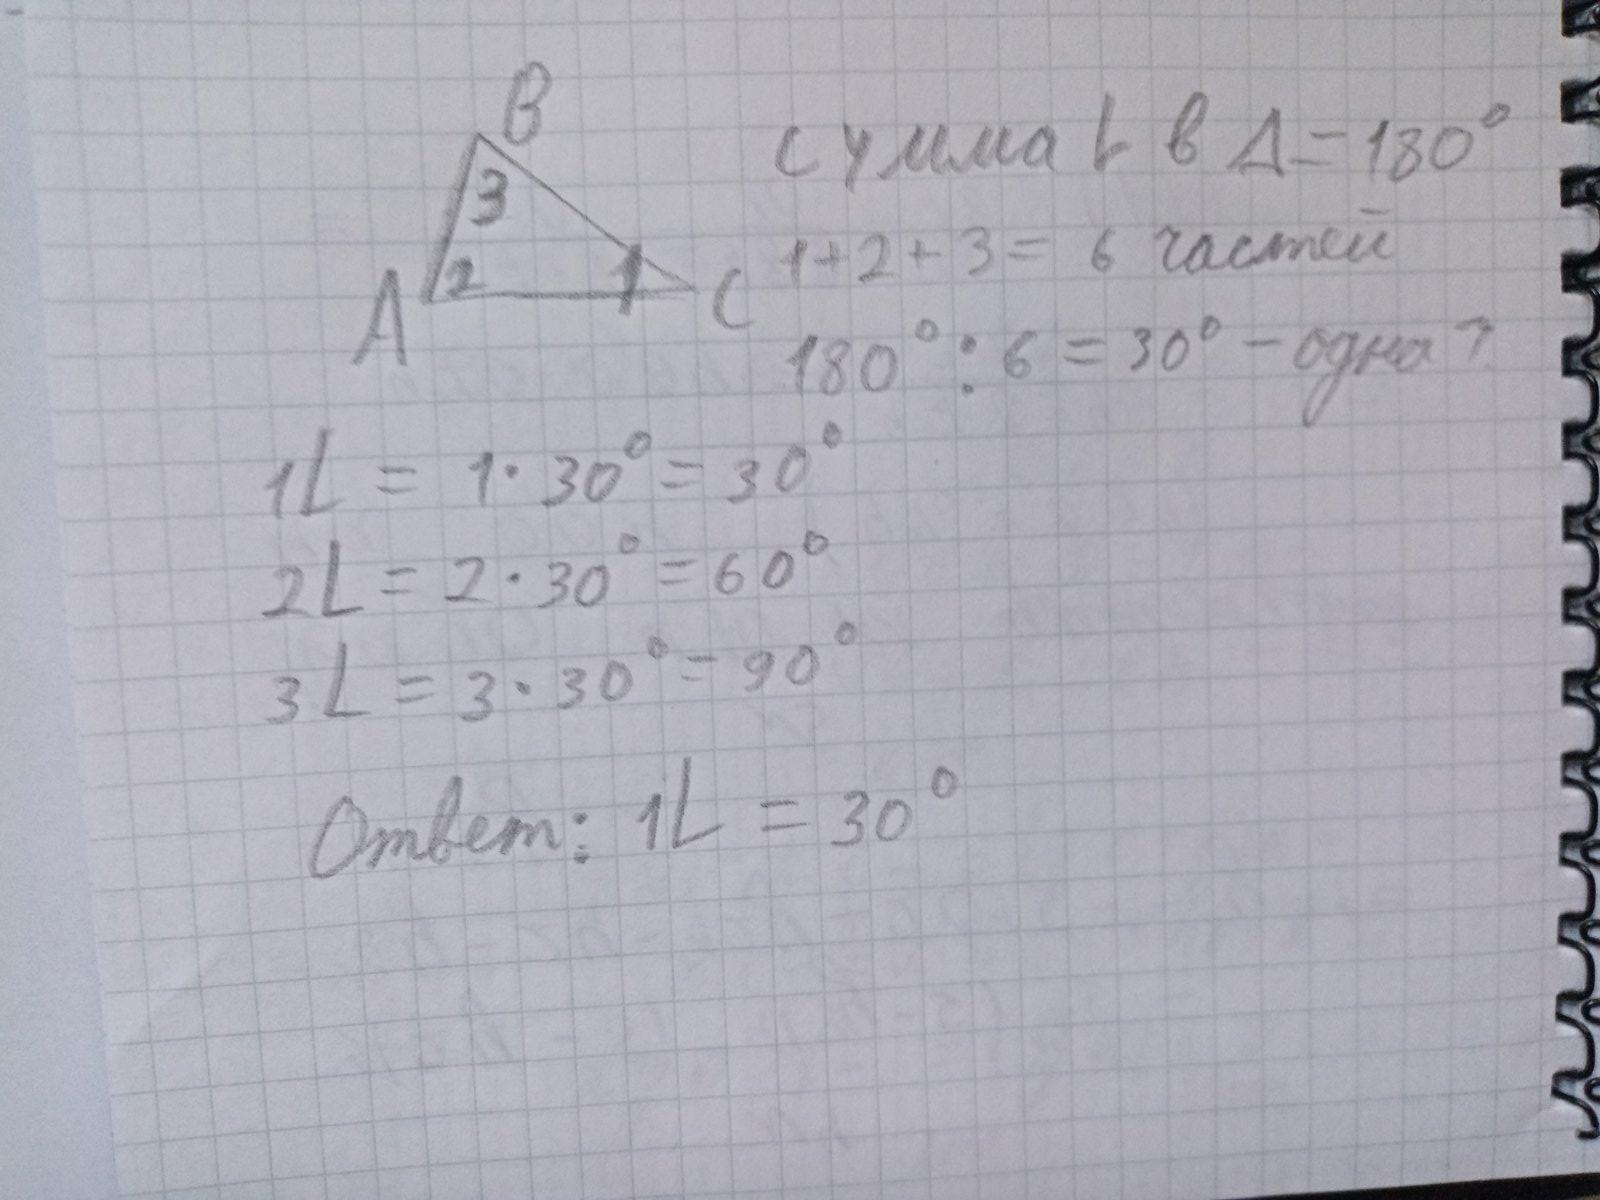 B
3
A 2 1 C
сумма L в Δ = 180°
1 + 2 + 3 = 6 частей
180° : 6 = 30° - одна ?
1L = 1 · 30° = 30°
2L = 2 · 30° = 60°
3L = 3 · 30° = 90°
Ответ: 1L = 30°